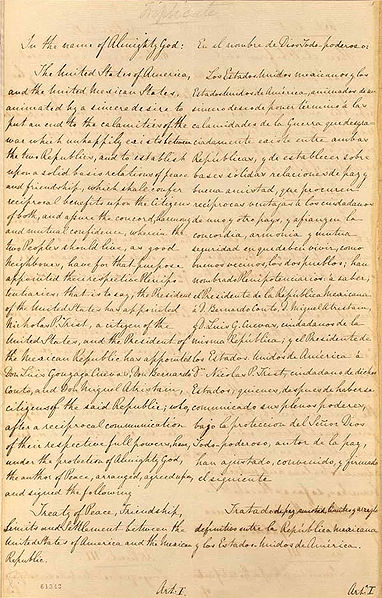 Triplicate
In the name of Almighty God:
The United States of America,
and the United Mexican States,
animated by a sincere desire to
put an end to the calamities of the
war which unhappily exists between
the two Republics, and to establish
upon a solid basis relations of peace
and friendship, which shall confer
reciprocal benefits upon the citizens
of both, and assure the concord, harmony
and mutual confidence, wherein the
two Peoples should live, as good
neighbours, have for that purpose
appointed their respective Plenipo-
tentiaries: that is to say, the President
of the United States has appointed
Nicholas P. Trist, a citizen of the
United States, and the President of
the Mexican Republic has appointed
Don Luis Gonzaga Cuevas, Don Bernardo
Couto, and Don Miguel Atristain,
citizens of the said Republic; who,
after a reciprocal communication
of their respective full powers, have,
under the protection of Almighty God,
the author of Peace, arranged, agreed upon,
and signed the following
Treaty of Peace, Friendship,
Limits and Settlement between the
United States of America and the Mexican
Republic.
Art: I.
61343
En el nombre de Dios Todo-poderoso:
Los Estados Unidos mexicanos y los
Estados Unidos de América, animados de un
sincero deseo de poner término á las
calamidades de la Guerra que desgra-
ciadamente existe entre ambas
Repúblicas, y de establecer sobre
bases sólidas relaciones de paz y
buena amistad, que procuren
recíprocas ventajas á los ciudadanos
de uno y otro pays, y afianzen la
concordia, armonía y mutua
seguridad en que deben vivir, como
buenos vecinos, los dos pueblos; han
nombrado Plenipotenciarios: á saber,
el Presidente de la República Mexicana
á D. Bernardo Couto, D. Miguel Atristain,
y D. Luis G. Cuevas, ciudadanos de la
misma República; y el Presidente de
los Estados Unidos de América á
Dn. Nicolas P. Trist, ciudadano de dichos
Estados; quienes, despues de haberse
comunicado sus plenos poderes,
bajo la proteccion del Señor Dios
Todo-poderoso, autor de la paz,
han ajustado, convenido, y firmado
el siguiente
Tratado de paz, amistad, límites y arreglo
definitivo entre la República mexicana
y los Estados Unidos de América.
Art. I